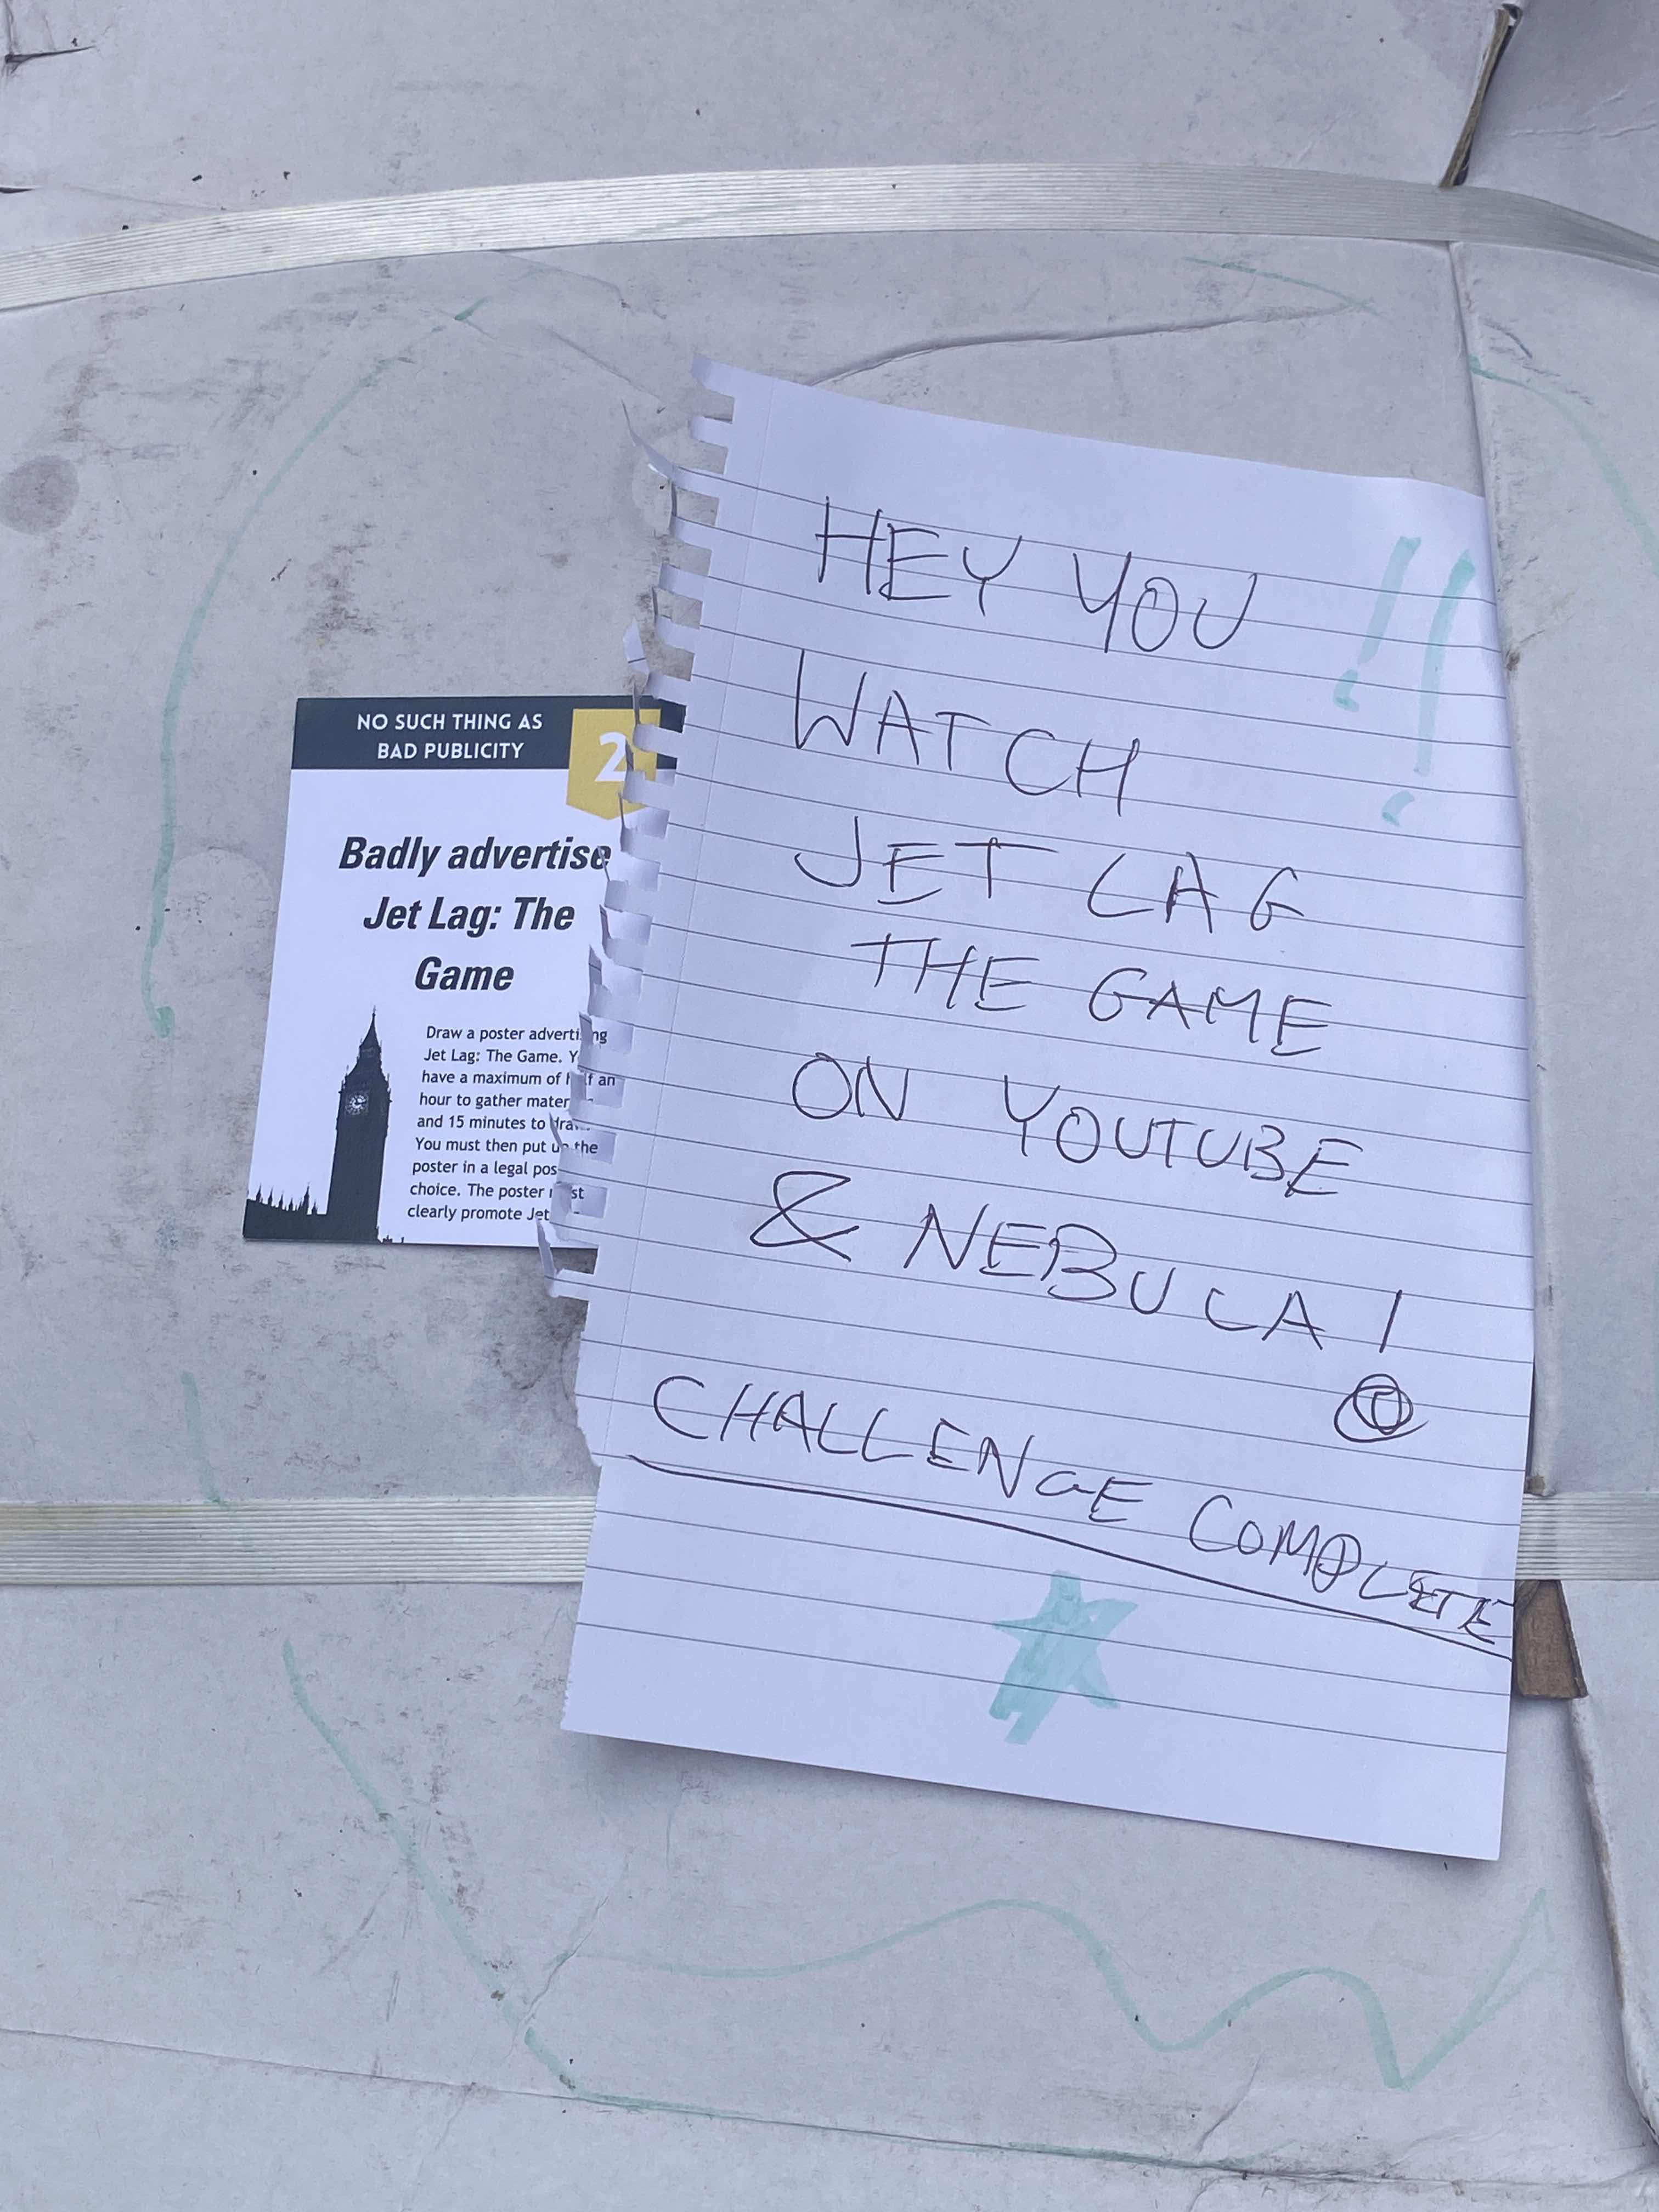 NO SUCH THING AS
BAD PUBLICITY
2
Badly advertise
Jet Lag: The
Game
Draw a poster advertising
Jet Lag: The Game. Y
have a maximum of half an
hour to gather mater
and 15 minutes to draw.
You must then put up the
poster in a legal pos
choice. The poster must
clearly promote Jet
HEY YOU !!
WATCH
JET LAG
THE GAME
ON YOUTUBE
& NEBULA!
CHALLENGE COMPLETE